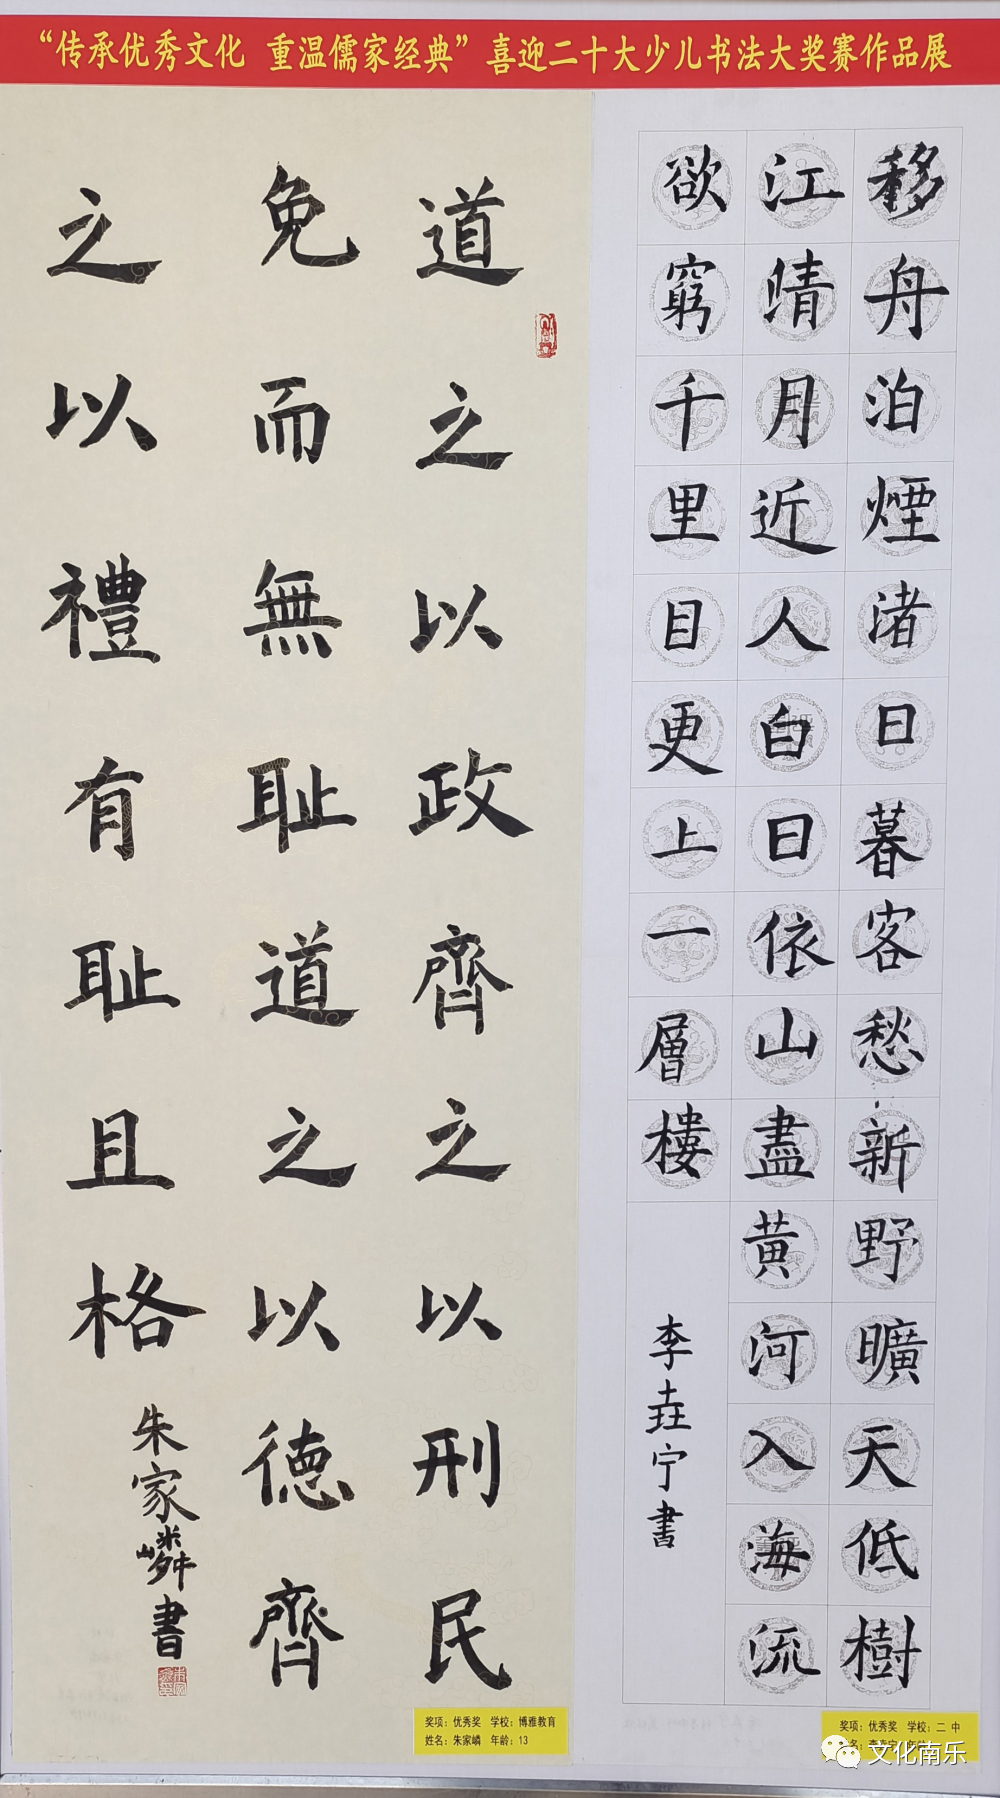 “传承优秀文化 重温儒家经典”喜迎二十大少儿书法大奖赛作品展
移舟泊煙渚日暮客愁新野曠天低樹
江晴月近人白日依山盡黄河入海流
欲窮千里目更上一層樓
李垚宁書
奖项：优秀奖 学校：二 中
道之以政齊之以刑民
免而無耻道之以德齊
之以禮有耻且格
朱家嶙書
奖项：优秀奖 学校：博雅教育
姓名：朱家嶙 年龄：13
文化南乐